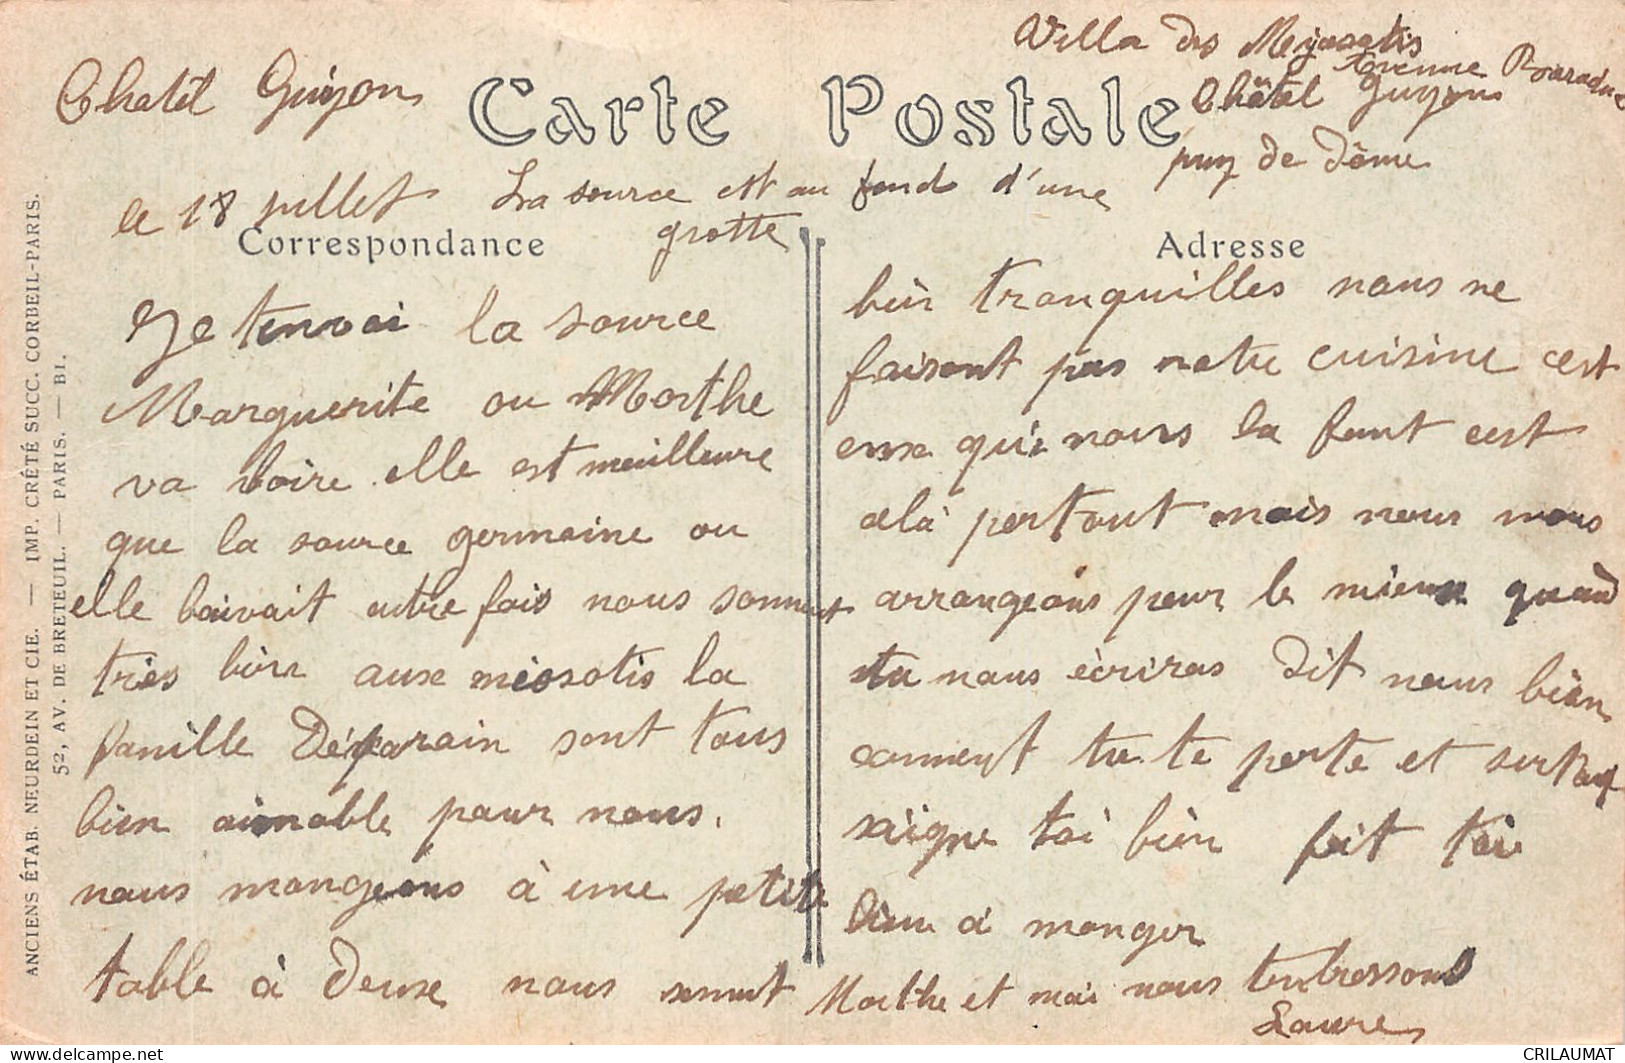 Villa des Myosotis
Avenue Baraduc
Châtel Guyon
puy de dôme
Chatel Guyon
Carte Postale
le 18 juillet
La source est au fond d'une
grotte
Correspondance
Je tenvoi la source
Marguerite ou Marthe
va boire elle est meuilleure
que la source germaine ou
elle boivait autre fois nous somment
très bien aux miosotis la
famille Déparain sont tous
bien aimable pour nous.
nous mangeons à une petite
table à deux nous somment
Adresse
bien tranquilles nous ne
faisont pas notre cuisine cest
eux qui nous la font cest
celà partout mais nous nous
arrangeons pour le mieux quand
tu nous écriras dit nous bien
comment tu te porte et surtout
saigne toi bien fait toi
bien à manger
Marthe et moi nous tenbrassons
Laure
ANCIENS ÉTAB. NEURDEIN ET CIE. — IMP. CRÉTÉ SUCC. CORBEIL-PARIS.
52, AV. DE BRETEUIL. — PARIS. — BI.
CRILAUMAT